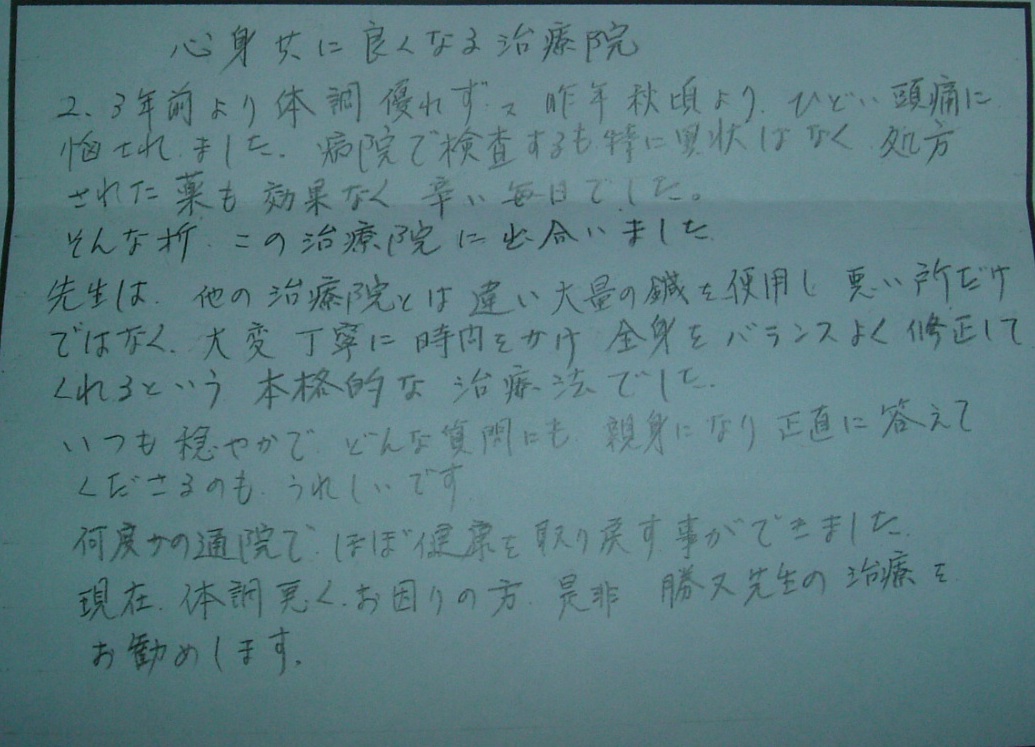 心身共に良くなる治療院
2、3年前より体調優れず 昨年秋頃より、ひどい頭痛に
悩まされました。病院で検査するも特に異状はなく 処方
された薬も効果なく 辛い毎日でした。
そんな折、この治療院に出合いました。
先生は、他の治療院とは違い大量の鍼を使用し 悪い所だけ
ではなく、大変丁寧に時間をかけ 全身をバランスよく修正して
くれるという 本格的な治療法でした。
いつも穏やかで、どんな質問にも 親身になり正直に答えて
くださるのも、うれしいです
何度かの通院で、ほぼ健康を取り戻す事ができました。
現在、体調悪く、お困りの方、是非 勝又先生の治療を
お勧めします。